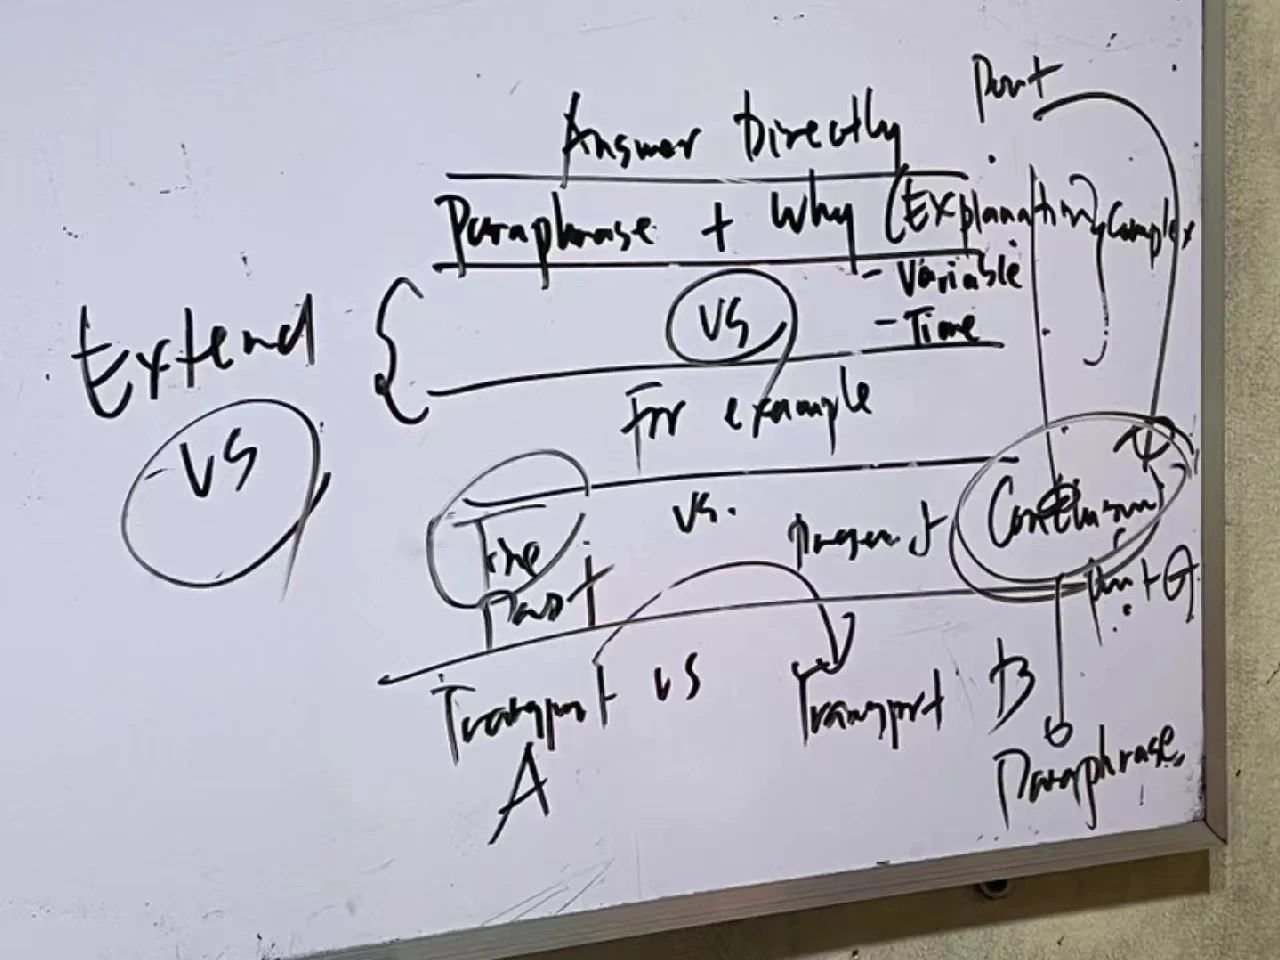 Answer Directly
Paraphrase + Why (Explanation) Complex
- Variable
VS
- Time
Extend
VS
For example
The Past
vs.
Present
Conclusion
Transport A
vs
Transport B
Paraphrase